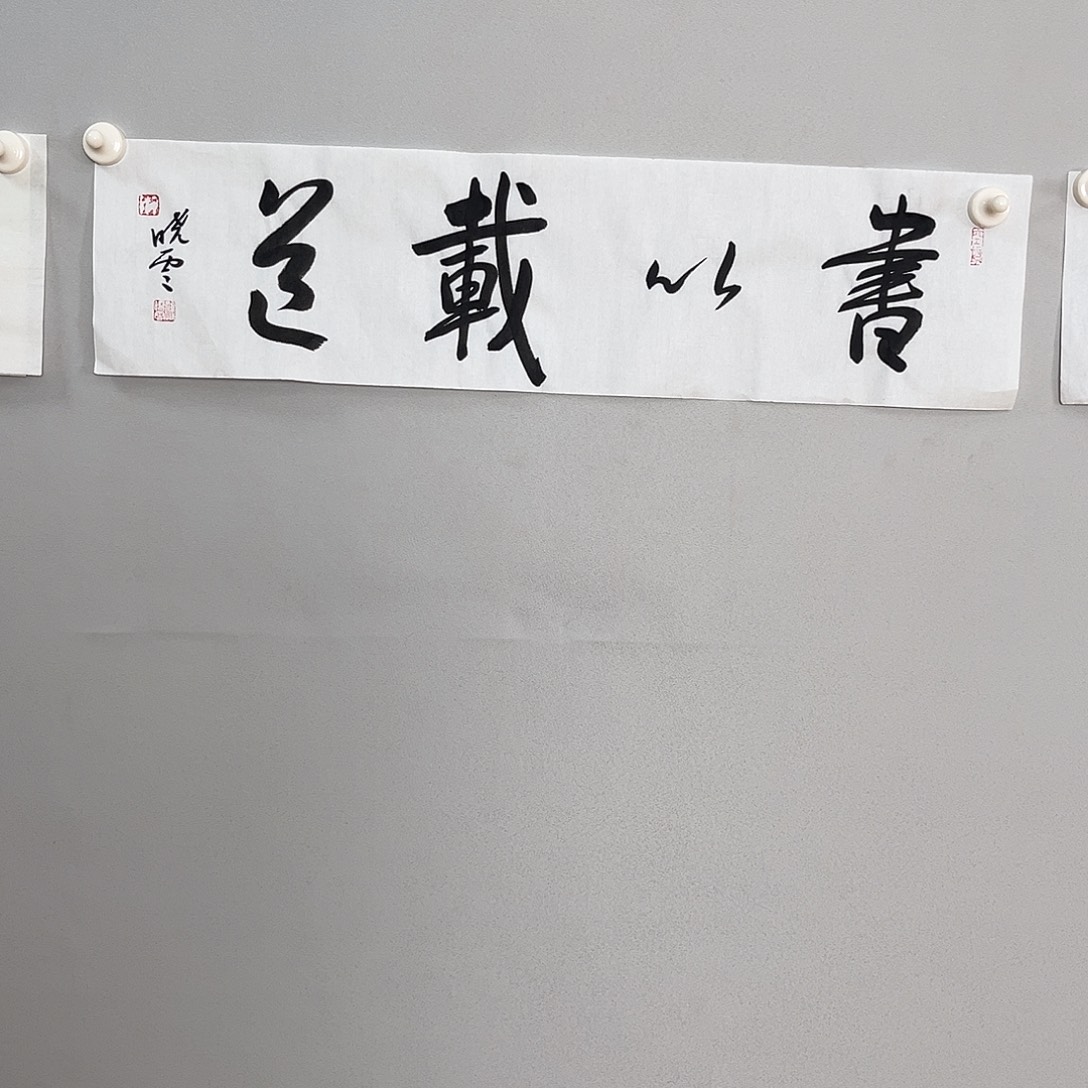 書以載道
晓雲